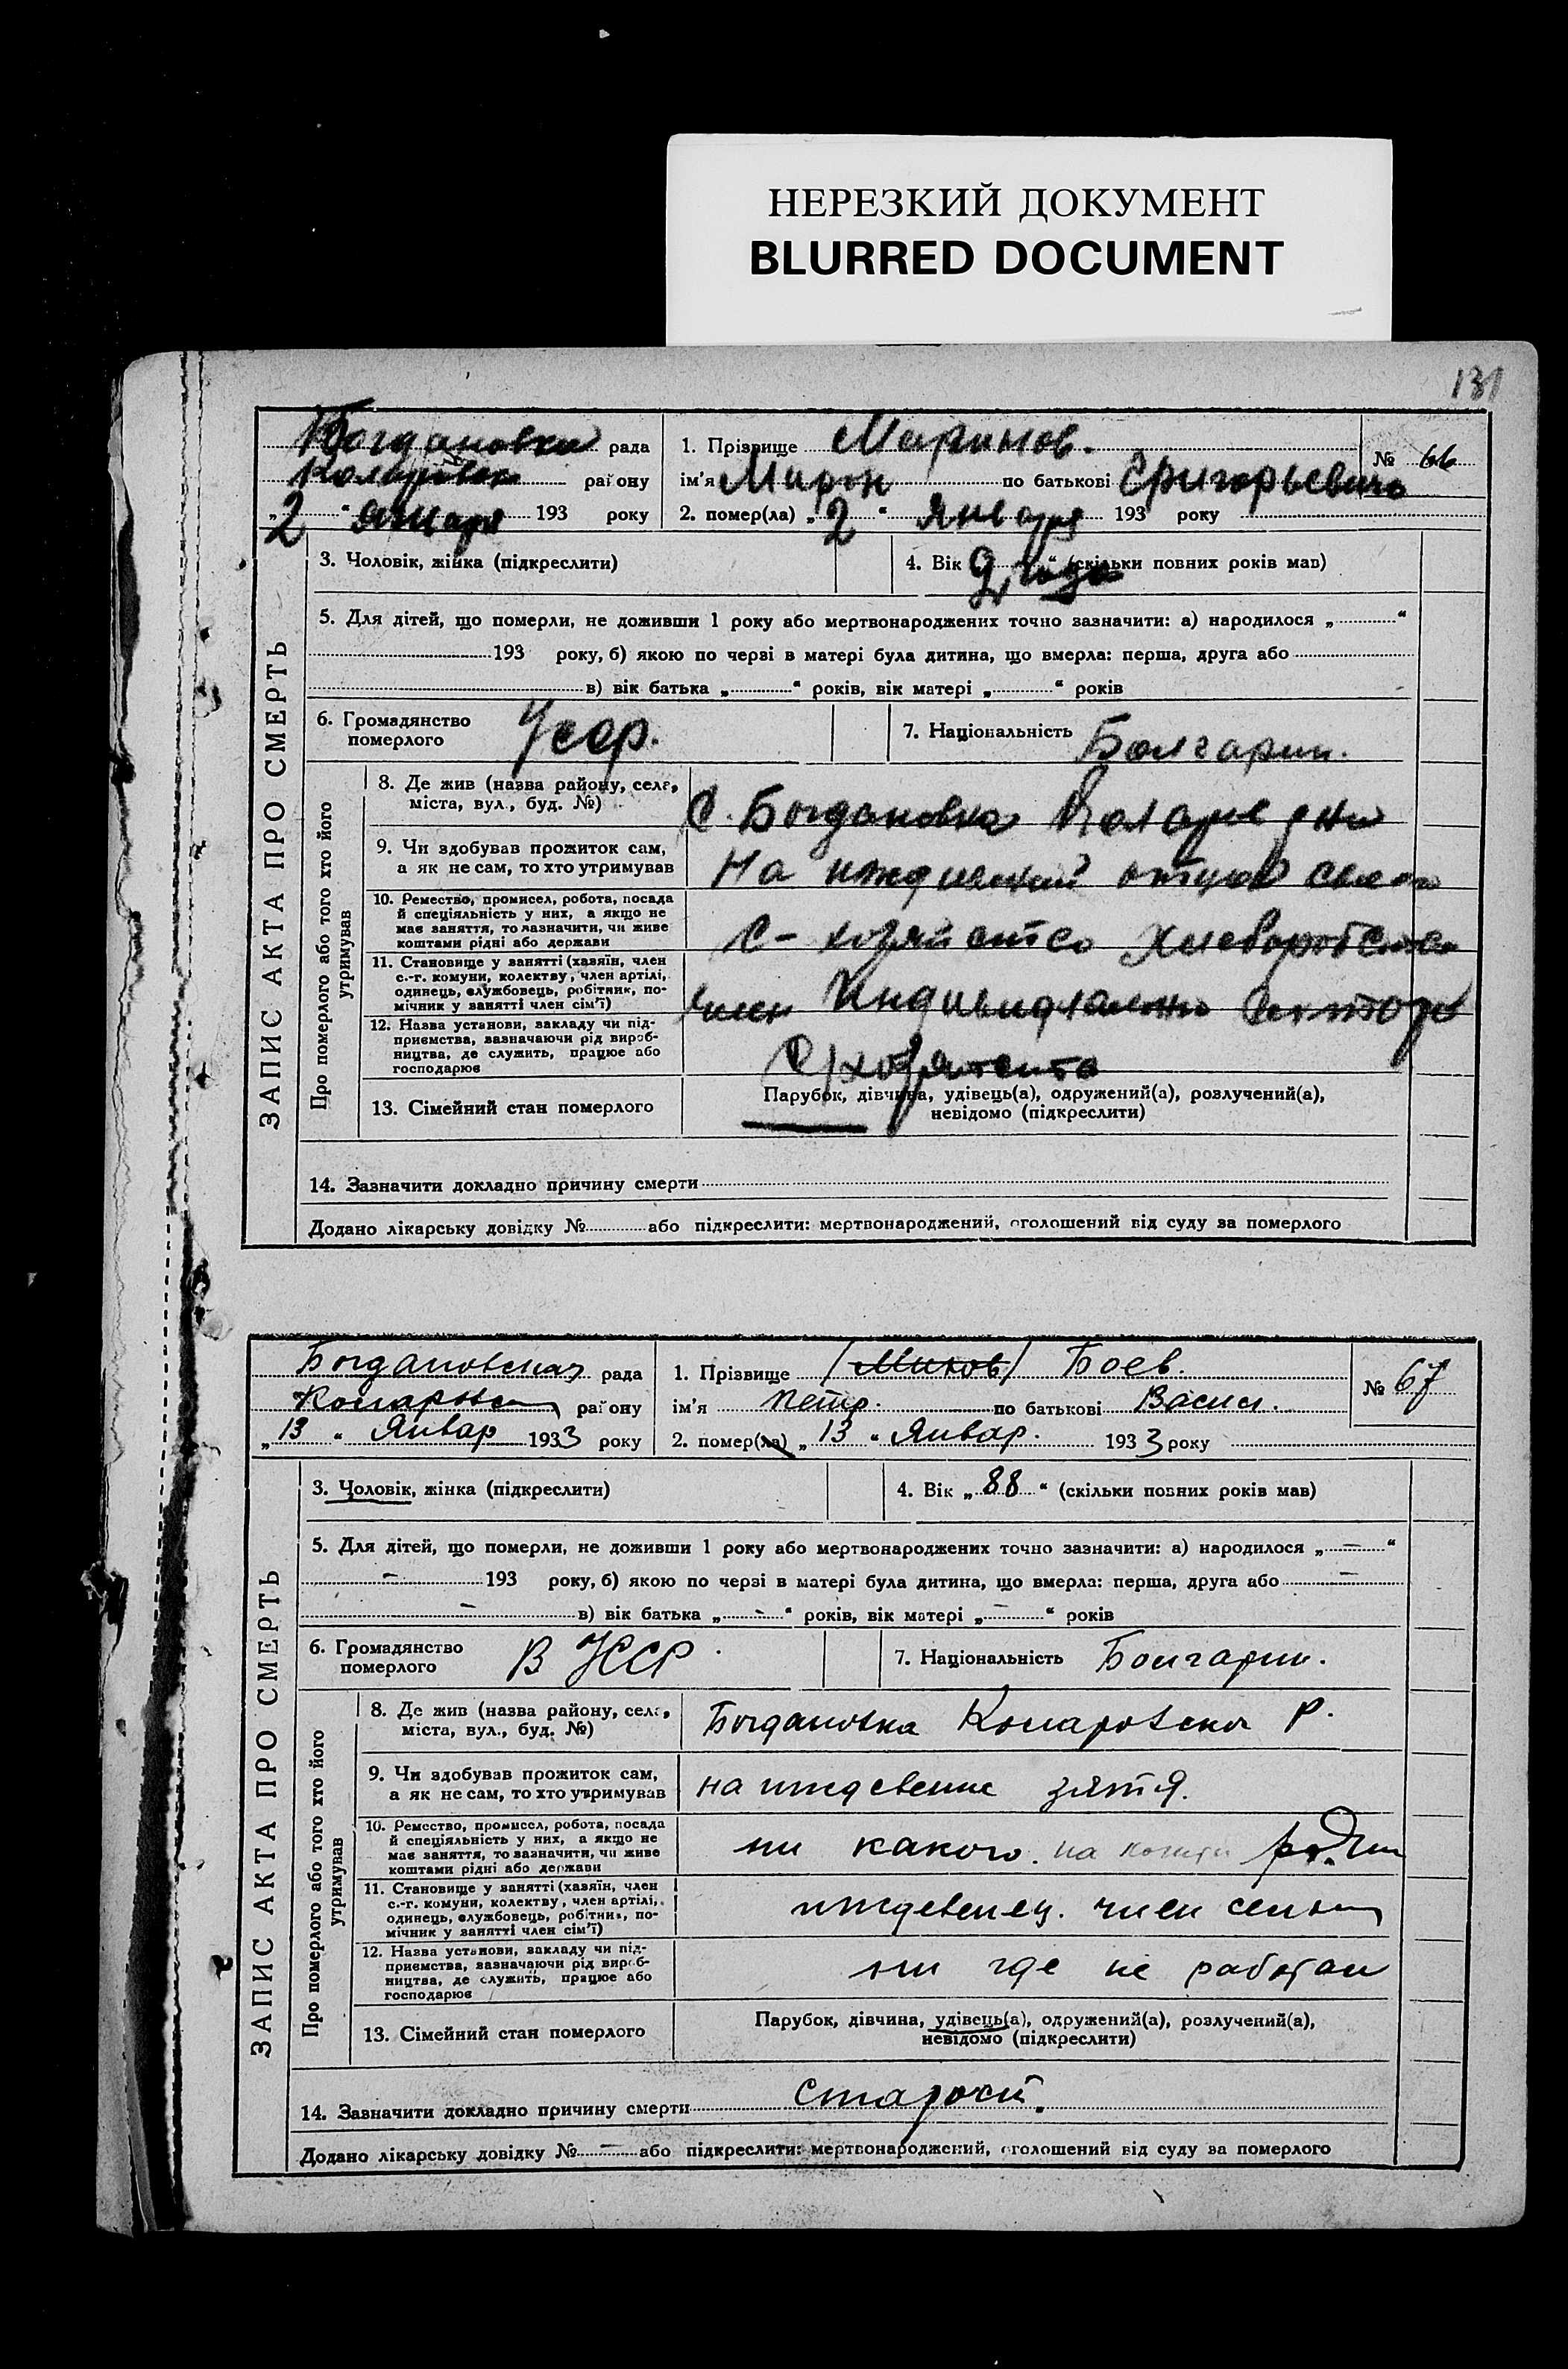 НЕРЕЗКИЙ ДОКУМЕНТ
BLURRED DOCUMENT
131
Богдановка рада
району
„2“ января 193 року
1. Прізвище Маринов.
ім'я Мирон по батькові Григорьевич
№ 66
2. помер(ла) „2“ января 193 року
3. Чоловік, жінка (підкреслити)
4. Вік (скільки повних років мав)
5. Для дітей, що померли, не доживши 1 року або мертвонароджених точно зазначити: а) народилося „ “
193 року, б) якою по черзі в матері була дитина, що вмерла: перша, друга або
в) вік батька „ “ років, вік матері „ “ років
6. Громадянство
померлого
Усср.
7. Національність Болгарин.
ЗАПИС АКТА ПРО СМЕРТЬ
Про померлого або того хто його
утримував
8. Де жив (назва району, села,
міста, вул., буд. №)
С. Богдановка
9. Чи здобував прожиток сам,
а як не сам, то хто утримував
На
10. Ремество, промисел, робота, посада
й спеціяльність у них, а якщо не
має заняття, то зазначити, чи живе
коштами рідні або держави
С-
11. Становище у занятті (хазяїн, член
с.-г. комуни, колективу, член артілі,
одинець, службовець, робітник, по-
мічник у занятті член сім'ї)
член
12. Назва установи, закладу чи під-
приємства, зазначаючи рід вироб-
ництва, де служить, працює або
господарює
13. Сімейний стан померлого
Парубок, дівчина, удівець(а), одружений(а), розлучений(а),
невідомо (підкреслити)
14. Зазначити докладно причину смерти
Додано лікарську довідку № або підкреслити: мертвонароджений, оголошений від суду за померлого
Богдановская рада
району
„13“ Январ 1933 року
1. Прізвище /Миков/ Боев.
ім'я Петр. по батькові Васил.
№ 67
2. помер(ла) „13“ Январ. 1933 року
3. Чоловік, жінка (підкреслити)
4. Вік „88“ (скільки повних років мав)
5. Для дітей, що померли, не доживши 1 року або мертвонароджених точно зазначити: а) народилося „—“
— 193 року, б) якою по черзі в матері була дитина, що вмерла: перша, друга або —
— в) вік батька „—“ років, вік матері „—“ років
6. Громадянство
померлого
В УССР.
7. Національність Болгарин.
ЗАПИС АКТА ПРО СМЕРТЬ
Про померлого або того хто його
утримував
8. Де жив (назва району, села,
міста, вул., буд. №)
Богдановка Коларовско Р.
9. Чи здобував прожиток сам,
а як не сам, то хто утримував
на иждевение зятя.
10. Ремество, промисел, робота, посада
й спеціяльність у них, а якщо не
має заняття, то зазначити, чи живе
коштами рідні або держави
ни какого. на
11. Становище у занятті (хазяїн, член
с.-г. комуни, колективу, член артілі,
одинець, службовець, робітник, по-
мічник у занятті член сім'ї)
иждевенец. член семьи
12. Назва установи, закладу чи під-
приємства, зазначаючи рід вироб-
ництва, де служить, працює або
господарює
ни где не работал
13. Сімейний стан померлого
Парубок, дівчина, удівець(а), одружений(а), розлучений(а),
невідомо (підкреслити)
14. Зазначити докладно причину смерти старост.
Додано лікарську довідку № — або підкреслити: мертвонароджений, оголошений від суду за померлого